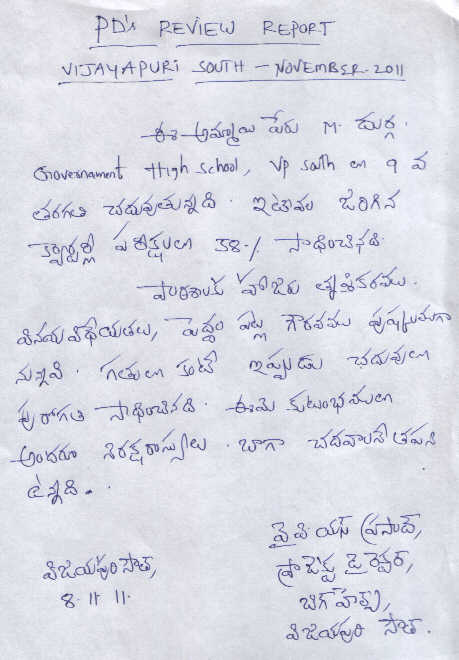 PD's REVIEW REPORT
VIJAYAPURI SOUTH - NOVEMBER-2011
ఈ అమ్మాయి పేరు M. దుర్గ.
Governament High School, VP South లో 9 వ
తరగతి చదువుతున్నది. ఇటీవల జరిగిన
క్వార్టర్లీ పరీక్షలలో 38% సాధించినది.
పాఠశాలకు హాజరు తృప్తికరము.
వినయ విధేయతలు, పెద్దల పట్ల గౌరవము పుష్కలముగా
నున్నవి. గతంలో కంటే ఇప్పుడు చదువులో
పురోగతి సాధించినది. ఈమె కుటుంబములో
అందరూ నిరక్షరాస్యులు. బాగా చదవాలనే తపన
ఉన్నది.
వై.వి.యస్ ప్రసాద్,
ప్రాజెక్టు డైరెక్టర్,
బిగ్ హెల్ప్,
విజయపురి సౌత్.
విజయపురి సౌత్,
8.11.11.